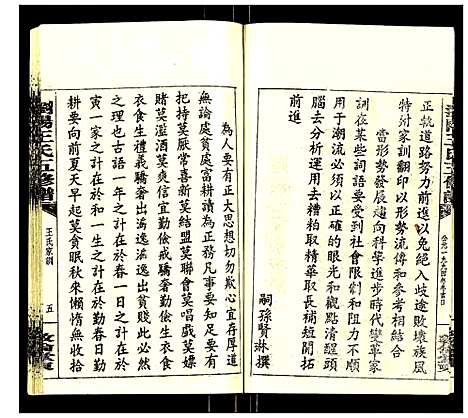 正軌道路努力前進以免絕入歧途敗壞族風
特附家訓翻印以形勢流傳和參考相結合
當形勢發展趨向科學進步時代變革家
訓在某些詞語受到社會限制和阻力
用於潮流必須以正確的眼光和觀點清醒頭
腦去分析運用去糟粕取精華揚長補短開拓
前進
嗣孫賢琳撰
瀏陽王氏五修譜
王氏家訓
五
為人要有正大思想切勿欺心宜存厚道
無論處貧處富耕讀為正務凡事要知足有
把持莫厭常喜新莫結盟莫聯會莫唱戲莫嫖
賭莫濫酒莫多言宜勤儉戒驕奢勤儉生衣食
衣食生禮義驕奢出淫逸淫逸出饑寒此必然
之理也古語一年之計在於春一日之計在於
寅一家之計在於和一生之計在於勤春日勤
耕要向前夏天早起莫貪眠秋來懶惰無收拾